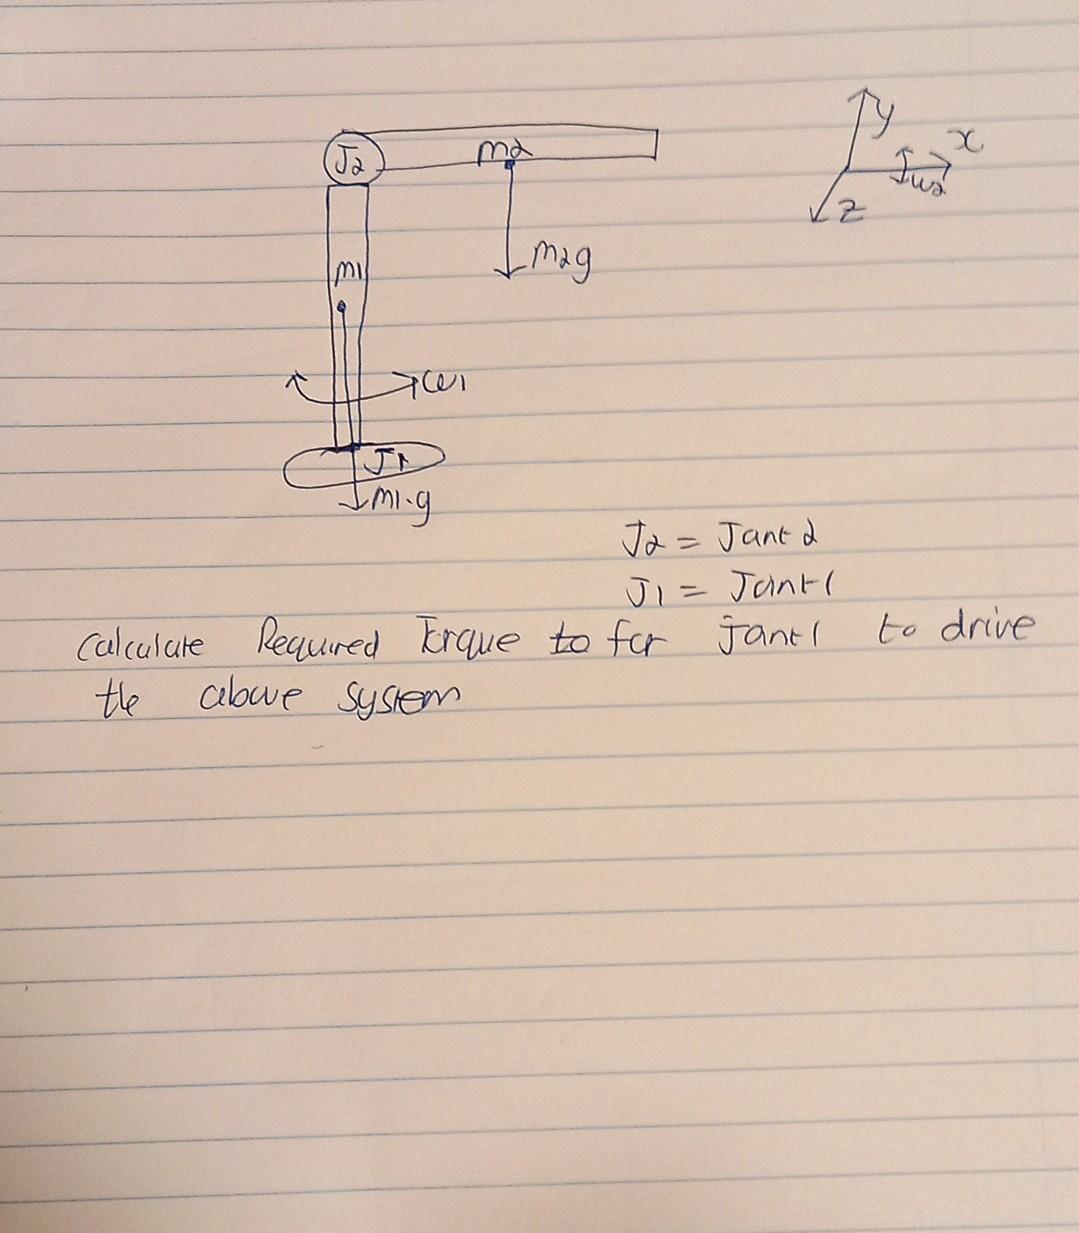 J2
m2
y
x
w2
z
m2g
m1
w1
J1
m1.g
J2 = Joint 2
J1 = Joint 1
Calculate Required Torque to for joint 1 to drive
the above system